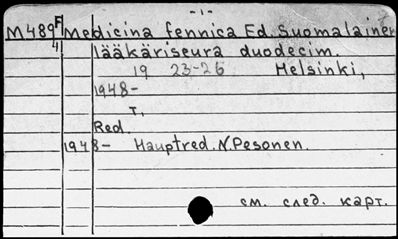 -1-
M489 F Medicina fennica Ed. Suomalainen
4 lääkäriseura duodecim.
19 23-26 Helsinki,
1948-
T,
Red.
1948- Hauptred. N. Pesonen.
см. след. карт.